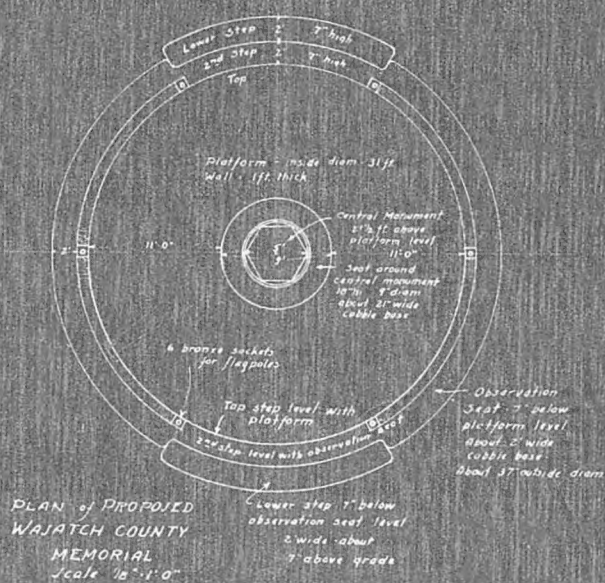 Lower Step 2' 7" high
2nd Step 2' 7" high
Top
Platform - inside diam. 31 ft.
Wall - 1 ft. thick
Central Monument
ft above
platform level
11'0"
2'
11'0"
Seat around
central monument
18" hi 9' diam
about 21" wide
cobble base
6 bronze sockets
for flagpoles
Top step level with
platform
2nd step level with observation seat
Observation
Seat - 7" below
platform level
About 2' wide
Cobble base
About 37' outside diam
Lower step 7" below
observation seat level
2' wide - about
7" above grade
PLAN of PROPOSED
WASATCH COUNTY
MEMORIAL
Scale 1/8" = 1'0"